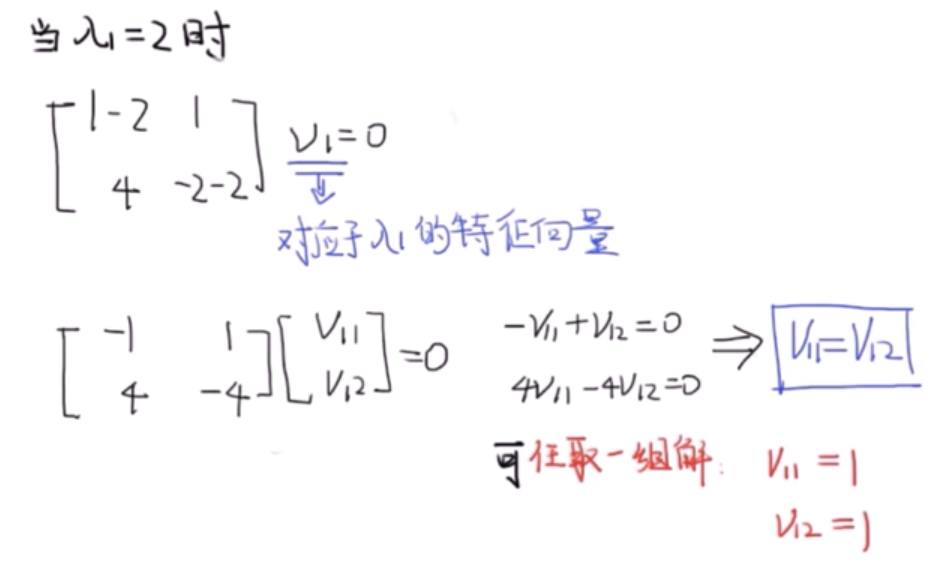 当 λ₁=2 时
[1-2 1
4 -2-2] v₁=0
⇓
对应于 λ₁ 的特征向量
[-1 1
4 -4] [V₁₁
V₁₂] =0
-V₁₁+V₁₂=0
4V₁₁-4V₁₂=0
⇒ V₁₁=V₁₂
可任取一组解: V₁₁=1
V₁₂=1